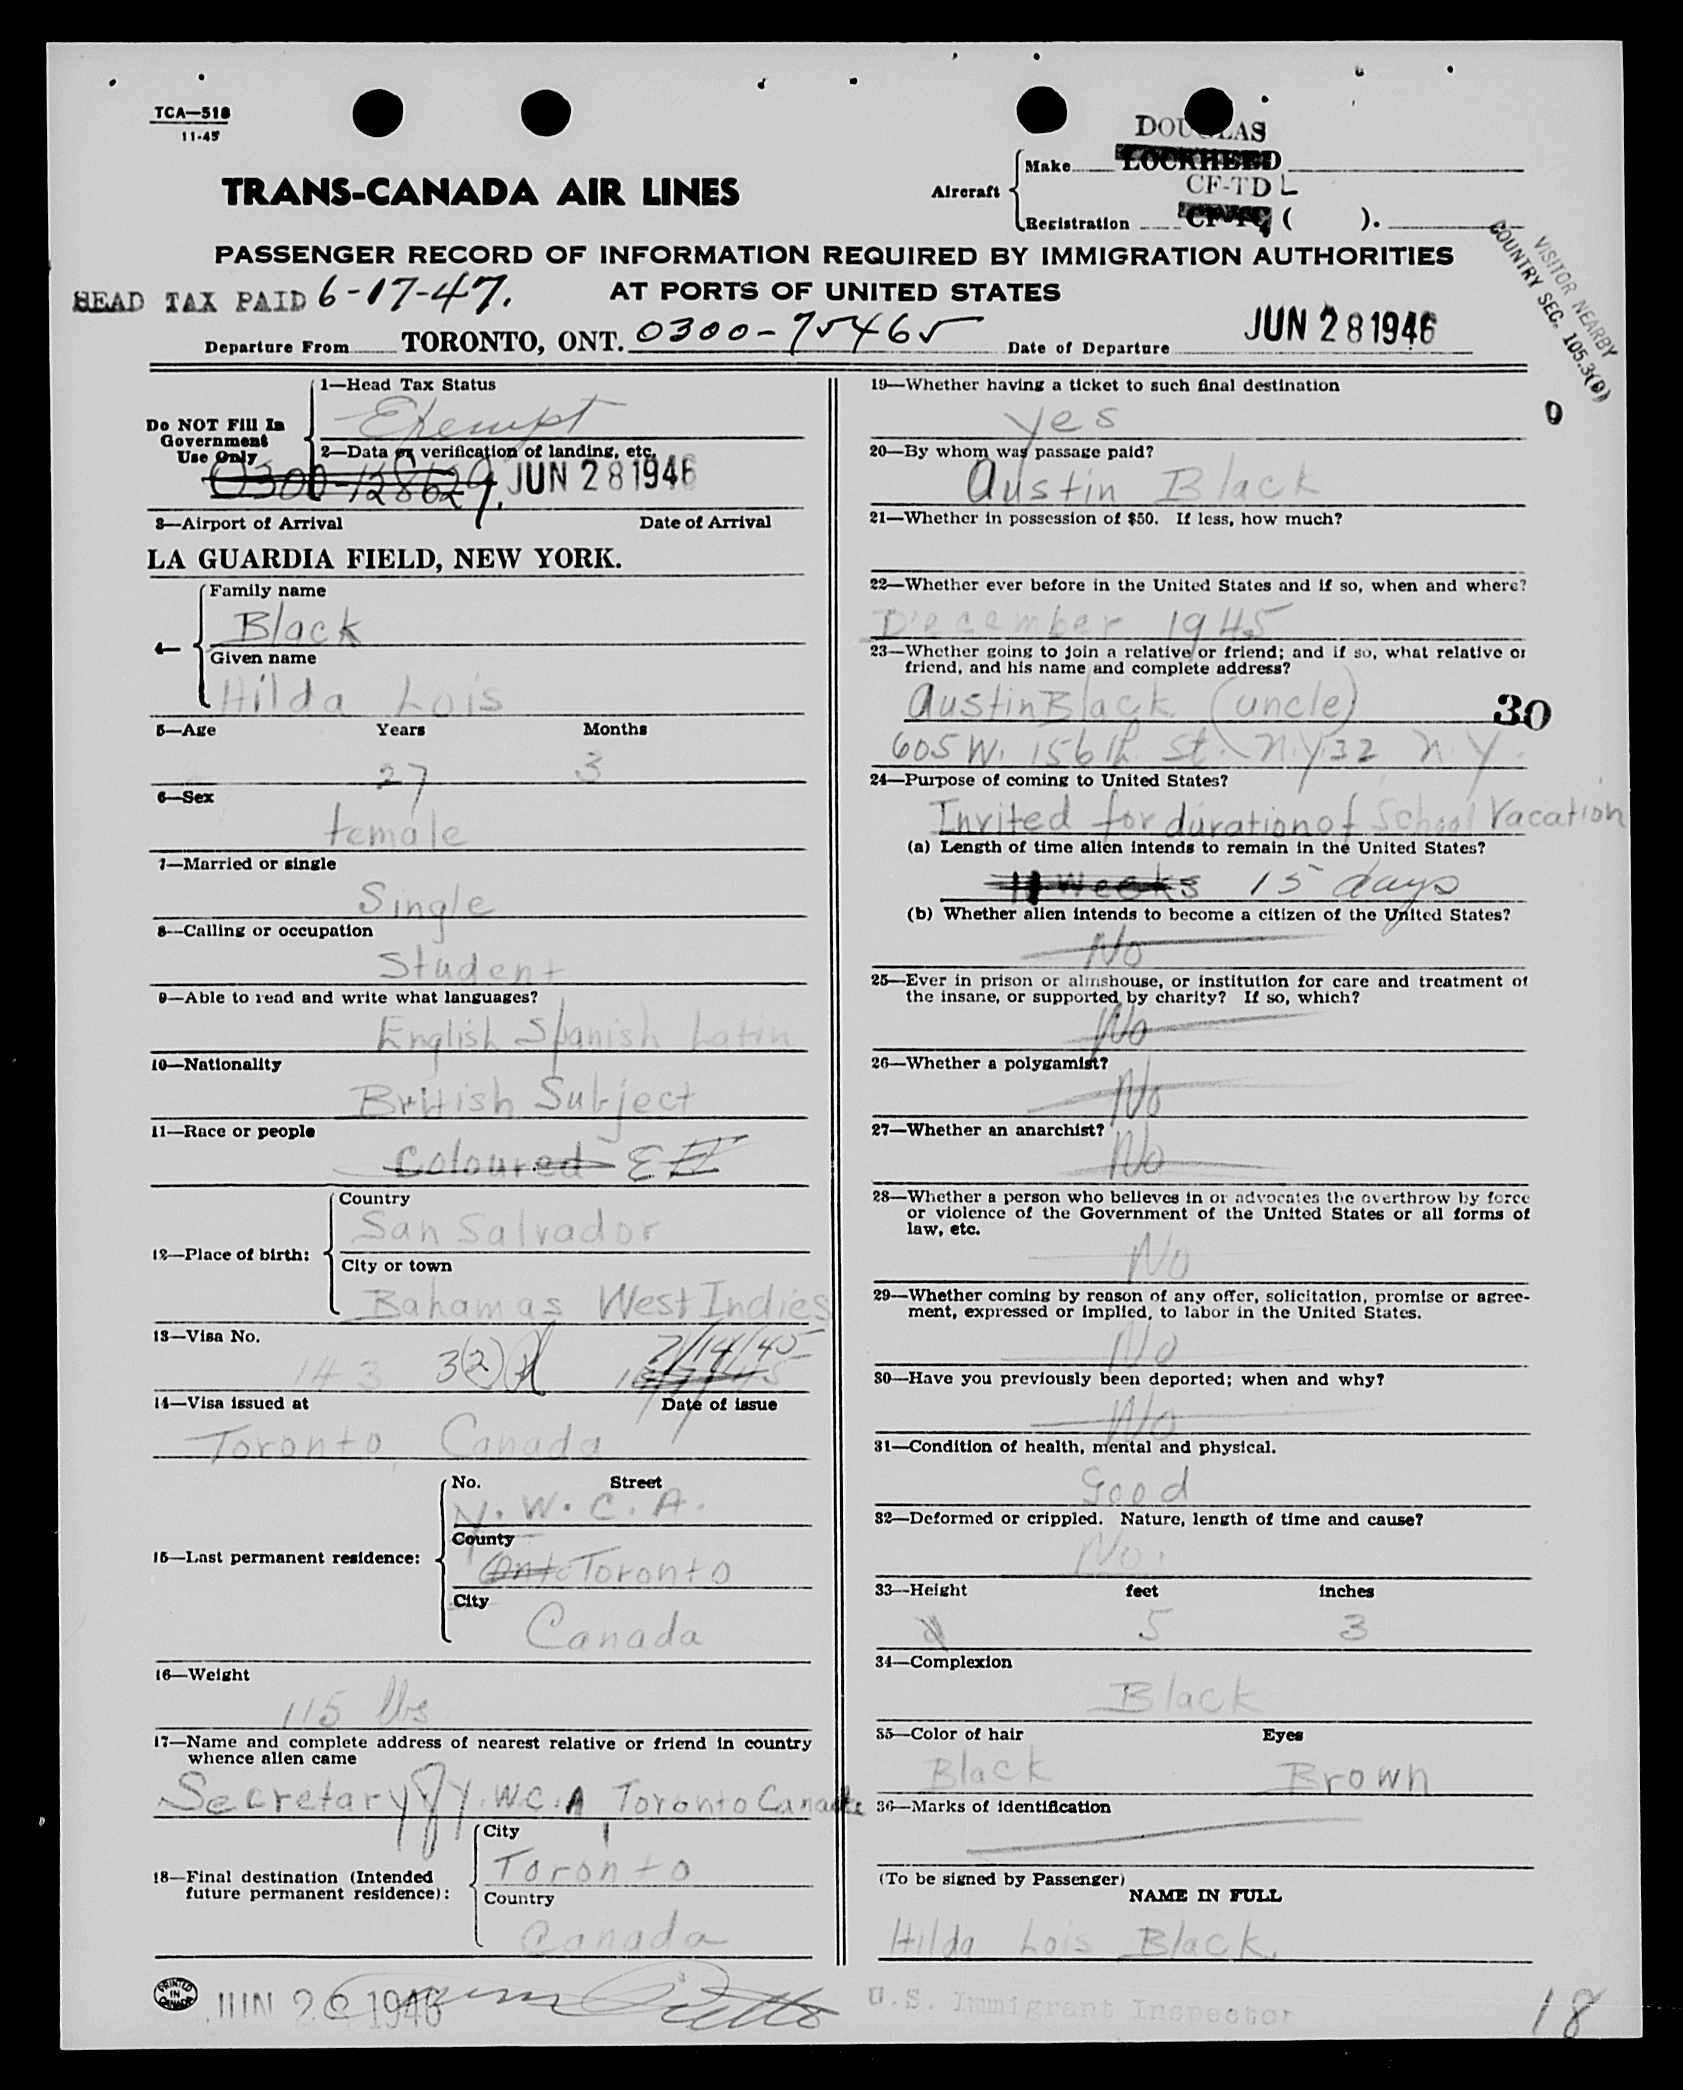 TCA—518
11-45
TRANS-CANADA AIR LINES
Aircraft
DOUGLAS
Make LOCKHEED
CF-TDL
Registration CF-TC ( ).
PASSENGER RECORD OF INFORMATION REQUIRED BY IMMIGRATION AUTHORITIES
AT PORTS OF UNITED STATES
VISITOR NEARBY
COUNTRY SEC. 105.3(D)
HEAD TAX PAID 6-17-47.
Departure From TORONTO, ONT. 0300-75465
Date of Departure JUN 28 1946
Do NOT Fill In
Government
Use Only
1—Head Tax Status
Exempt
2—Data or verification of landing, etc.
0300-128629. JUN 28 1946
3—Airport of Arrival Date of Arrival
LA GUARDIA FIELD, NEW YORK.
4—
Family name
Black
Given name
Hilda Lois
5—Age Years Months
27 3
6—Sex
female
7—Married or single
Single
8—Calling or occupation
Student
9—Able to read and write what languages?
English Spanish Latin
10—Nationality
British Subject
11—Race or people
Coloured
12—Place of birth:
Country
San Salvador
City or town
Bahamas West Indies
13—Visa No.
143 3(2) 7/14/45
14—Visa issued at Date of issue
Toronto Canada
15—Last permanent residence:
No. Street
Y.W.C.A.
County
Ont. Toronto
City
Canada
16—Weight
115 lbs
17—Name and complete address of nearest relative or friend in country
whence alien came
Secretary Y.W.C.A Toronto Canada
18—Final destination (Intended
future permanent residence):
City
Toronto
Country
Canada
PRINTED
IN
CANADA
JUN 28 1946
19—Whether having a ticket to such final destination
yes
0
20—By whom was passage paid?
Austin Black
21—Whether in possession of $50. If less, how much?
22—Whether ever before in the United States and if so, when and where?
December 1945
23—Whether going to join a relative or friend; and if so, what relative or
friend, and his name and complete address?
Austin Black (uncle)
30
605 W. 156th St. N.Y. 32 N.Y.
24—Purpose of coming to United States?
Invited for duration of School Vacation
(a) Length of time alien intends to remain in the United States?
11 weeks 15 days
(b) Whether alien intends to become a citizen of the United States?
No
25—Ever in prison or almshouse, or institution for care and treatment of
the insane, or supported by charity? If so, which?
No
26—Whether a polygamist?
No
27—Whether an anarchist?
No
28—Whether a person who believes in or advocates the overthrow by force
or violence of the Government of the United States or all forms of
law, etc.
No
29—Whether coming by reason of any offer, solicitation, promise or agree-
ment, expressed or implied, to labor in the United States.
No
30—Have you previously been deported; when and why?
No
31—Condition of health, mental and physical.
Good
32—Deformed or crippled. Nature, length of time and cause?
No.
33—Height feet inches
5 3
34—Complexion
Black
35—Color of hair Eyes
Black Brown
36—Marks of identification
(To be signed by Passenger)
NAME IN FULL
Hilda Lois Black.
U.S. Immigrant Inspector
18